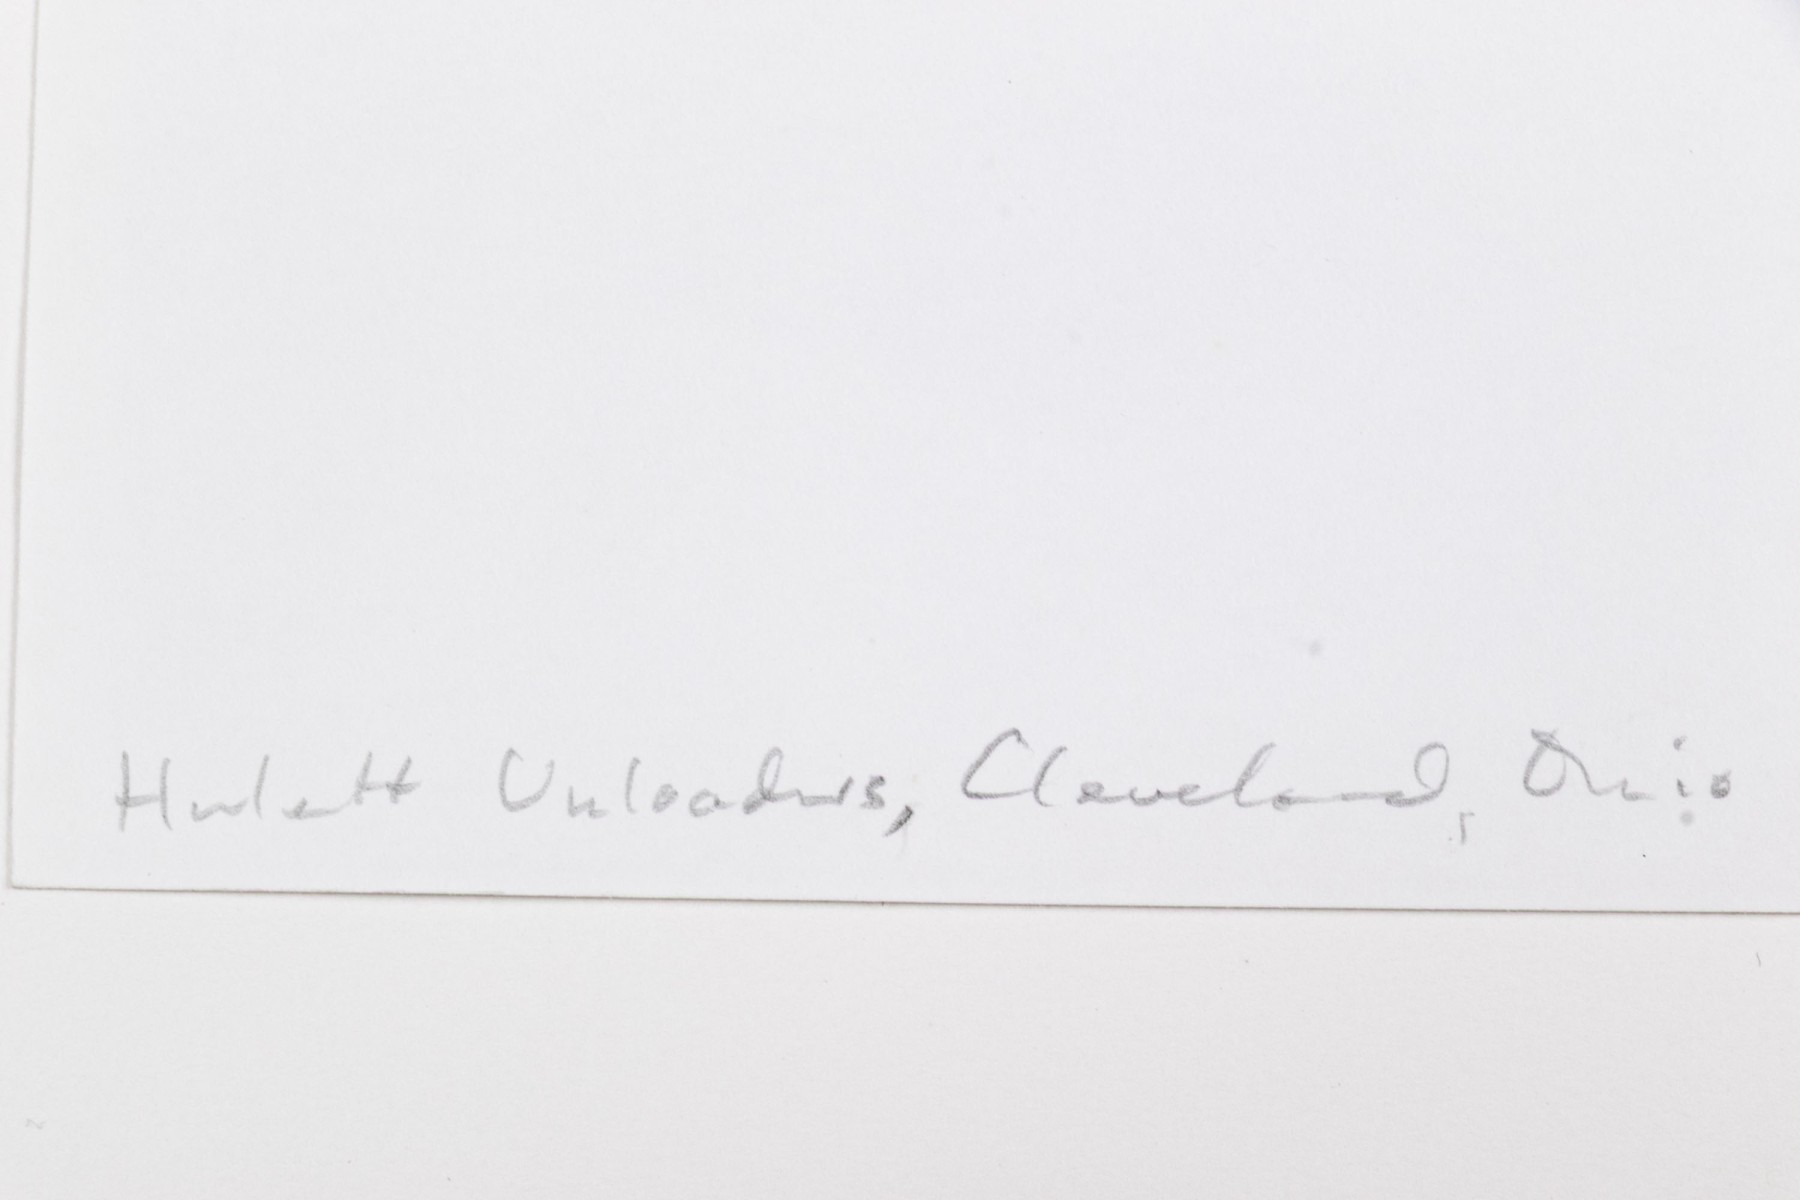 Hulett Unloaders, Cleveland, Ohio